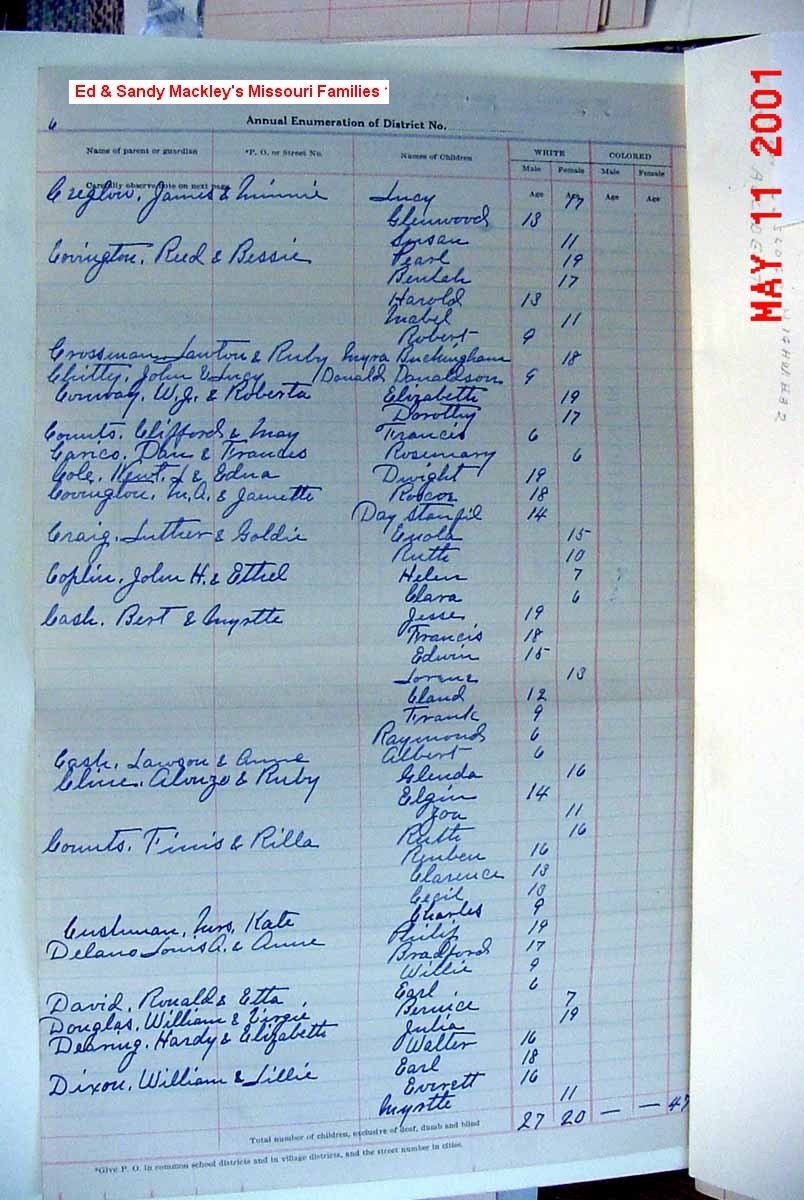 Ed & Sandy Mackley's Missouri Families
6
Annual Enumeration of District No.
Name of parent or guardian *P. O. or Street No. Names of Children WHITE COLORED
Male Female Male Female
Carefully observe note on next page Age Age Age Age
Creglow, James & Minnie Lucy 17
Glenwood 13
Susan 11
Covington, Reed & Bessie Pearl 19
Beulah 17
Harold 13
Mabel 11
Robert 9
Crossman, Lawton & Ruby Myra Buckingham 18
Chitty, John & Lucy Donald Donaldson 9
Conway, W.J. & Roberta Elizabeth 19
Dorothy 17
Counts, Clifford & May Francis 6
Dan & Francis Rosemary 6
Cole, & Edna Dwight 19
Covington, M.A. & Roscoe 18
Day Stanfil 14
Craig, Luther & Goldie Enola 15
Ruth 10
Coplin, John H. & Ethel Helen 7
Clara 6
Cash, Bert & Myrtle Jesse 19
Francis 18
Edwin 15
Lorene 13
Claud 12
Frank 9
Raymond 6
Cash, Lawson & Anne Albert 6
Cline, Alonzo & Ruby Glenda 16
Elgin 14
Zou 11
Counts, Finis & Rilla Ruth 16
Reuben 16
Clarence 13
Cecil 13
Charles 9
Cushman, Mrs. Kate Philip 19
Delano Louis A. & Anne Bradford 17
Willie 9
Earl 6
David, Ronald & Etta Bernice 7
Douglas, William & Virgie Julia 19
Dearing, Hardy & Elizabeth Walter 16
Earl 18
Dixon, William & Lillie Everett 16
Myrtle 11
27 20 — — 47
Total number of children, exclusive of deaf, dumb and blind
*Give P. O. in common school districts and in village districts, and the street number in cities.
MAY 11 2001